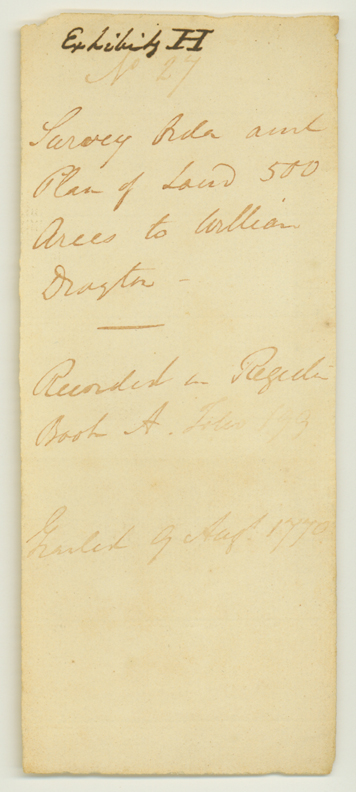 Exhibit H
No 27
Survey Order and
Plan of Land 500
Acres to William
Drayton —
Recorded in Register
Book A. Folio 179
9 Augt. 1770